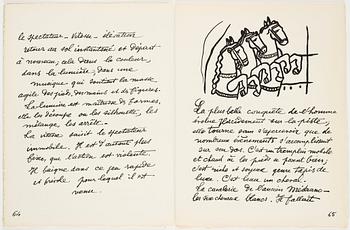 le spectateur – vitesse – élévation
retour au sol instantané et départ
à nouveau, cela dans la couleur,
dans la lumière, dans une
musique qui soutient la masse
agile des pieds, des mains et des figures.
La lumière est maîtresse des formes,
elle les découpe ou les silhouette, les
mélange, les arrête.
La vitesse saisit le spectateur
immobile. Il est d'autant plus
fixe, que l'action est violente.
Il baigne dans ce jeu rapide
et frivole pour lequel il est
venu.
64
La plus belle conquête de l'homme
évolue gracieusement sur la piste,
elle tourne sans s'apercevoir que de
nombreux évènements s'accomplissent
sur son dos. C'est un tremplin mobile
et chaud à les pieds à parut bras;
c'est riche et soyeux genre tapis de
luxe. C'est beau un cheval.
La cavalerie de l'ancien Médrano –
les six chevaux blancs. Il fallait
65